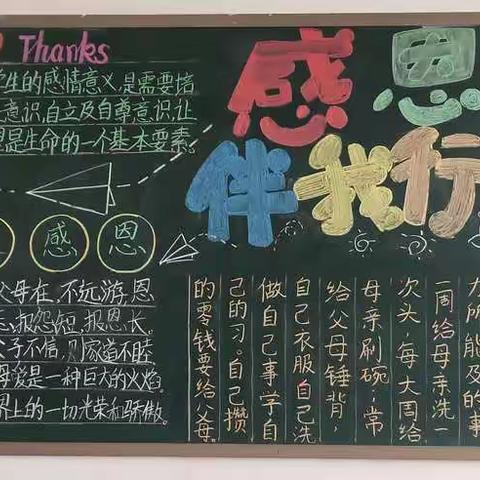 Thanks
学生的感情意义,是需要培
意识,自立及自尊意识,让
是生命的一个基本要素。
感恩
伴我行
感 恩
父母在,不远游,恩
忘,报怨短,报恩长。
父子不信,则家道不睦
母爱是一种巨大的火焰
界上的一切光荣和骄傲。
力所能及的事
一周给母亲洗一
次头,每大周给
母亲刷碗;常
给父母锤背,
自己衣服自己洗
做自己事学自
己的习。自己攒
的零钱要给父母。